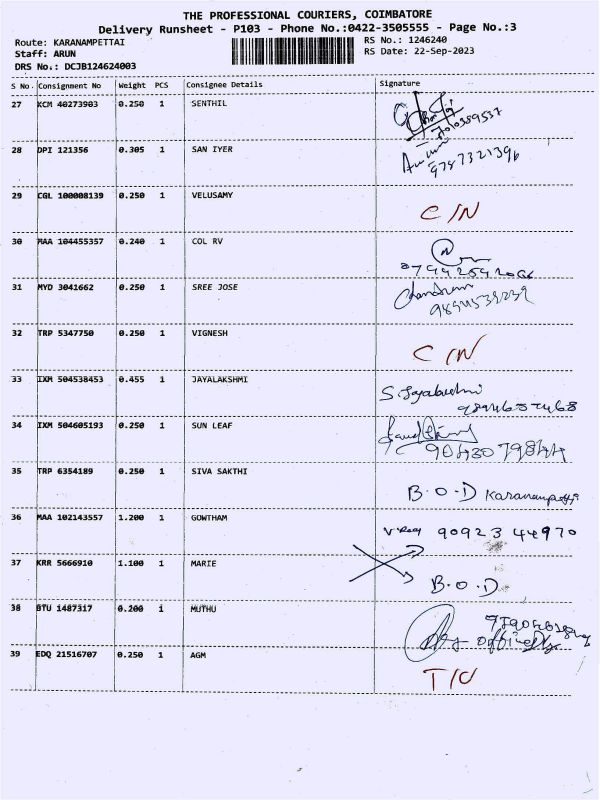 THE PROFESSIONAL COURIERS, COIMBATORE
Delivery Runsheet - P103 - Phone No.:0422-3505555 - Page No.:3
Route: KARANAMPETTAI RS No.: 1246240
Staff: ARUN RS Date: 22-Sep-2023
DRS No.: DCJB124624003
S No. Consignment No Weight PCS Consignee Details Signature
27 KCM 40273903 0.250 1 SENTHIL
7010389537
28 DPI 121356 0.305 1 SAN IYER
9787321396
29 CGL 100008139 0.250 1 VELUSAMY
C/N
30 MAA 104455357 0.240 1 COL RV
31 MYD 3041662 0.250 1 SREE JOSE
32 TRP 5347750 0.250 1 VIGNESH
C/N
33 IXM 504538453 0.455 1 JAYALAKSHMI
34 IXM 504605193 0.250 1 SUN LEAF
35 TRP 6354189 0.250 1 SIVA SAKTHI
B.O.D Karanampatti
36 MAA 102143557 1.200 1 GOWTHAM
90923 44970
37 KRR 5666910 1.100 1 MARIE
B.O.D
38 BTU 1487317 0.200 1 MUTHU
39 EDQ 21516707 0.250 1 AGM